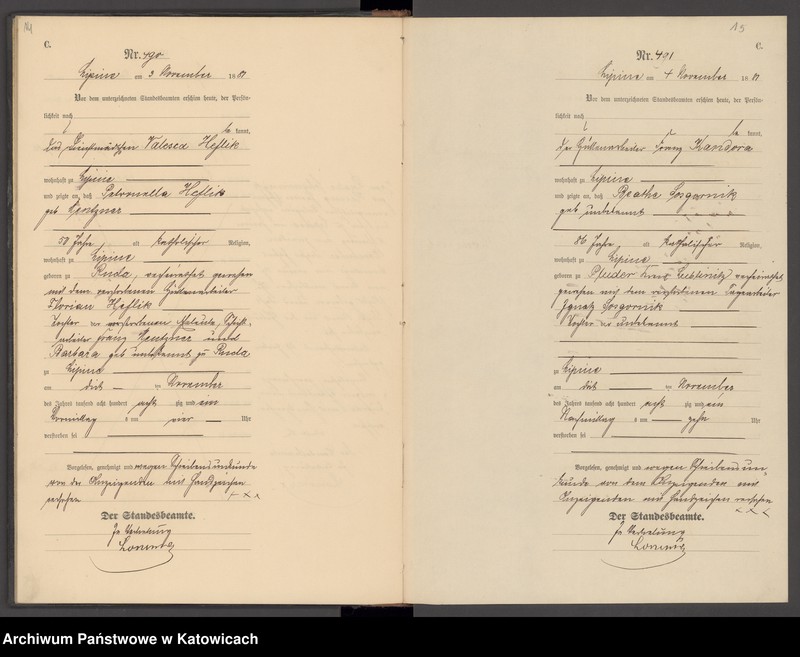 14
C.
Nr. 490
Lipine am 3 November 1881
Vor dem unterzeichneten Standesbeamten erschien heute, der Persön-
lichkeit nach
be kannt,
das Dienstmädchen Valesca Heflik
wohnhaft zu Lipine
und zeigte an, daß Petronella Heflik
geb
50 Jahre alt katholischer Religion,
wohnhaft zu Lipine
geboren zu Ruda, verheirathet gewesen
mit dem verstorbenen Hüttenarbeiter
Florian Heflik
Tochter des verstorbenen
arbeiter Franz und
Barbara geb unbekannt zu Ruda
zu Lipine
am drit ten November
des Jahres tausend acht hundert acht zig und ein
Vormittag s um vier Uhr
verstorben sei
Vorgelesen, genehmigt und wegen Schreibensunkunde
von der Anzeigenden mit Handzeichen
versehen
+ x x
Der Standesbeamte.
In Vertretung
15
C.
Nr. 491
Lipine am 4 November 1881
Vor dem unterzeichneten Standesbeamten erschien heute, der Persön-
lichkeit nach
be kannt,
der Hüttenarbeiter Franz Kandora
wohnhaft zu Lipine
und zeigte an, daß Beathe Sosgornik
geb unbekannt
86 Jahre alt katholischer Religion,
wohnhaft zu Lipine
geboren zu Pluder Kreis Lublinitz verheirathet
gewesen mit dem verstorbenen Tagearbeiter
Ignatz Sosgornik
Tochter des unbekannt
zu Lipine
am drit ten November
des Jahres tausend acht hundert acht zig und ein
Nachmittag s um zehn Uhr
verstorben sei
Vorgelesen, genehmigt und wegen Schreibensun-
kunde von dem Anzeigenden mit
Handzeichen versehen
x x x
Der Standesbeamte.
In Vertretung
Archiwum Państwowe w Katowicach